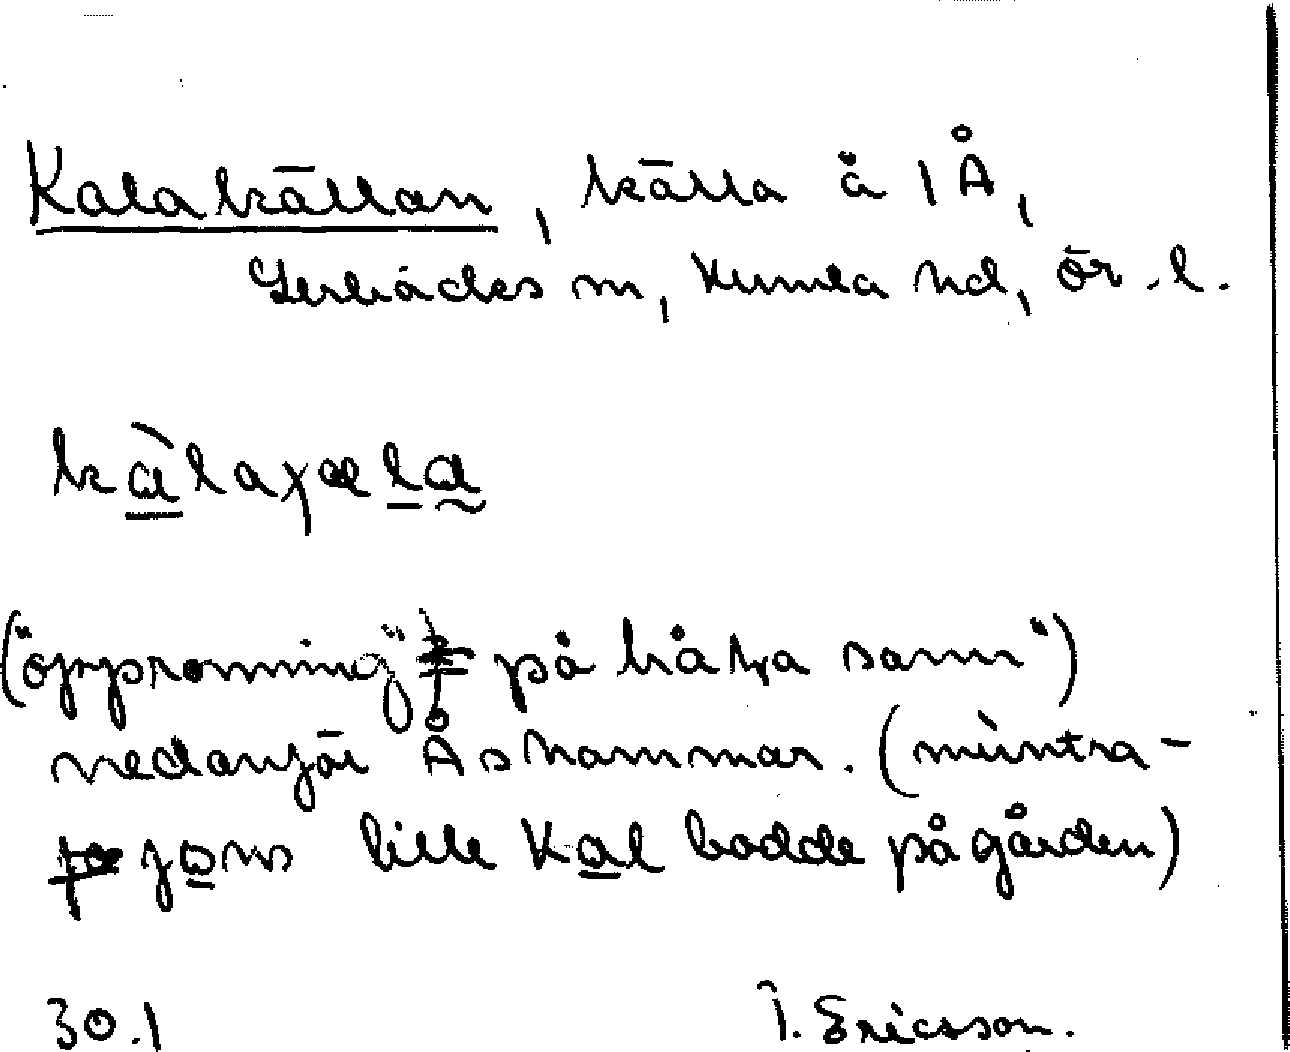 Kalakällan, källa å 1 Å,
Lerbäcks sn, Kumla hd, ör. l.
kàlaxæla
("öppronning" på håka sam")
nedanför Åshammar. (mùntra-
jons lille Kal bodde på gården)
30.1 I. Ericsson.